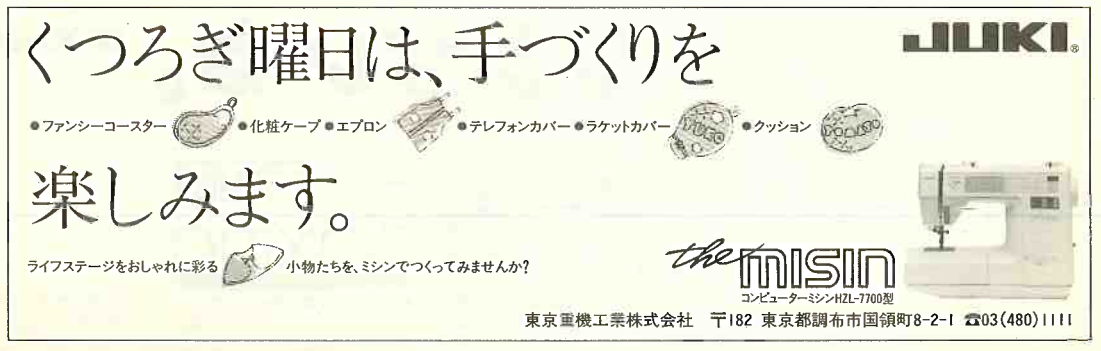 くつろぎ曜日は、手づくりを
JUKI®
●ファンシーコースター ●化粧ケープ●エプロン ●テレフォンカバー●ラケットカバー ●クッション
楽しみます。
ライフステージをおしゃれに彩る 小物たちを、ミシンでつくってみませんか?
the misin
コンピューターミシンHZL-7700型
東京重機工業株式会社 〒182 東京都調布市国領町8-2-1 ☎03(480)1111